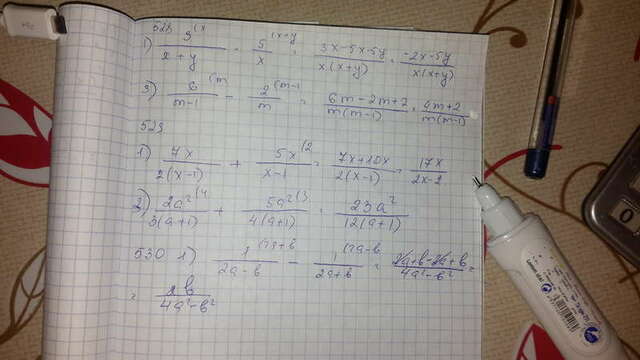 528
1) 3(x / x+y - 5(x+y / x = 3x-5x-5y / x(x+y) = -2x-5y / x(x+y)
3) 6(m / m-1 - 2(m-1 / m = 6m-2m+2 / m(m-1) = 4m+2 / m(m-1)
529
1) 7x / 2(x-1) + 5x(2 / x-1 = 7x+10x / 2(x-1) = 17x / 2x-2
3) 2a²(4 / 3(a+1) + 5a²(3 / 4(a+1) = 23a² / 12(a+1)
530 1) 1(2a+b / 2a-b - 1(2a-b / 2a+b = 2a+b-2a+b / 4a²-b² =
= 2b / 4a²-b²